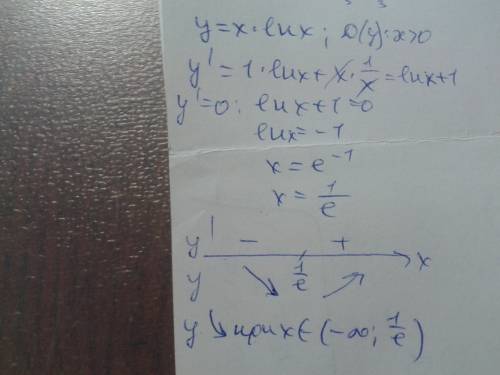 y = x · lnx ; D(y): x>0
y' = 1 · lnx + x · 1/x = lnx+1
y'=0: lnx+1=0
lnx = -1
x = e^-1
x = 1/e
y' − + x
y ↘ 1/e ↗
y ↘ при x ∈ (-∞; 1/e)